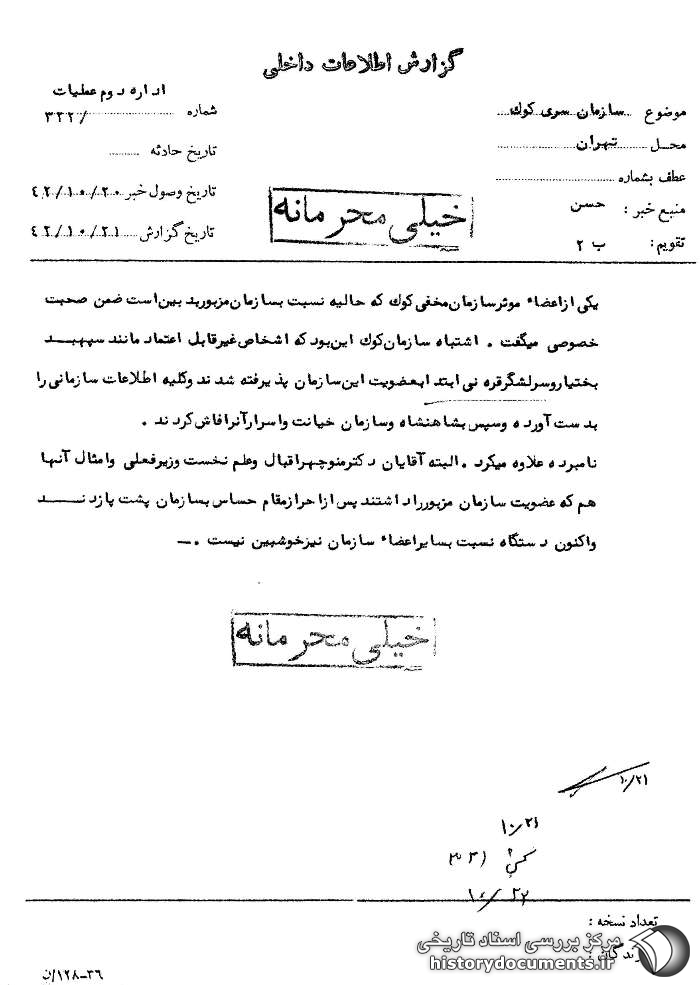 گزارش اطلاعات داخلی
اداره دوم عملیات
موضوع سازمان سری کوك
شماره /۳۲۲
محل تهران
تاریخ حادثه
عطف بشماره
تاریخ وصول خبر ۴۲/۱۰/۲۰
منبع خبر : حسن
تاریخ گزارش ۴۲/۱۰/۲۱
تقویم : ب ۲
خیلی محرمانه
یکی از اعضاء موثر سازمان مخفی کوك که حالیه نسبت بسازمان مزبور بد بین است ضمن صحبت
خصوصی میگفت . اشتباه سازمان کوك این بود که اشخاص غیرقابل اعتماد مانند سپهبد
بختیار و سرلشگر قره نی ابتدا بعضویت این سازمان پذیرفته شدند و کلیه اطلاعات سازمانی را
بدست آورده و سپس بشاهنشاه و سازمان خیانت و اسرار آنرا فاش کردند .
نامبرده علاوه میکرد . البته آقایان دکتر منوچهر اقبال و علم نخست وزیر فعلی و امثال آنها
هم که عضویت سازمان مزبور را داشتند پس از احراز مقام حساس بسازمان پشت پا زدند
و اکنون دستگاه نسبت بسایر اعضاء سازمان نیز خوشبین نیست . —
خیلی محرمانه
۱۰/۲۱
۱۰/۲۱
۱۰/۲۲
تعداد نسخه :
مرکز بررسی اسناد تاریخی
historydocuments.ir
۳۶-۱۲۸/ن